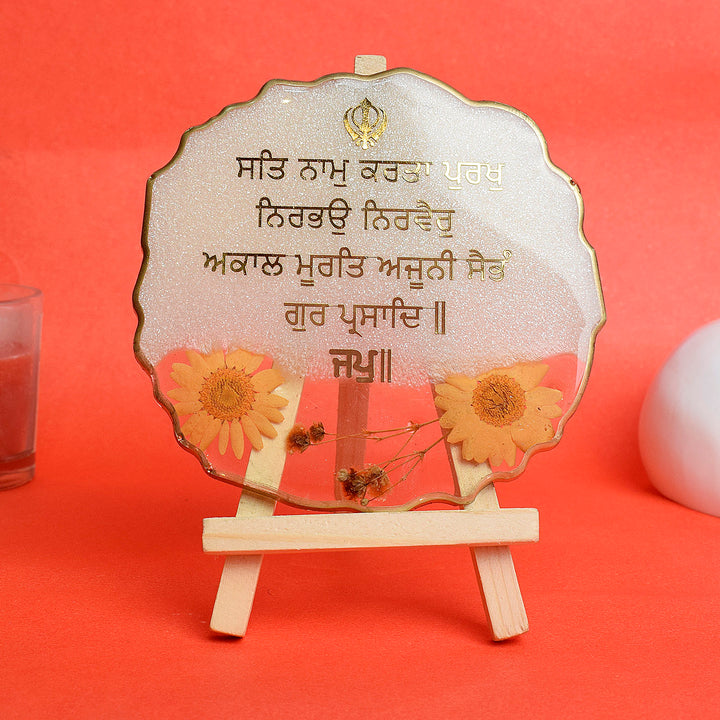 ਸਤਿ ਨਾਮੁ ਕਰਤਾ ਪੁਰਖੁ
ਨਿਰਭਉ ਨਿਰਵੈਰੁ
ਅਕਾਲ ਮੂਰਤਿ ਅਜੂਨੀ ਸੈਭੰ
ਗੁਰ ਪ੍ਰਸਾਦਿ ॥
ਜਪੁ॥